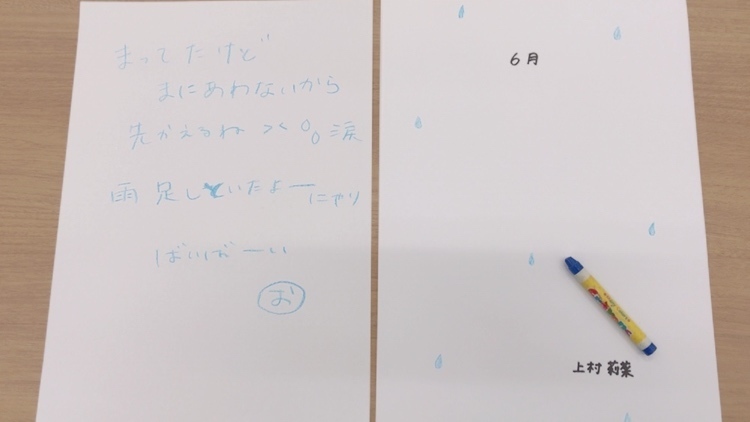 まってたけど
まにあわないから
先かえるね >< 涙
雨 足しといたよー
にやり
ばいばーい
お
6月
上村 莉菜